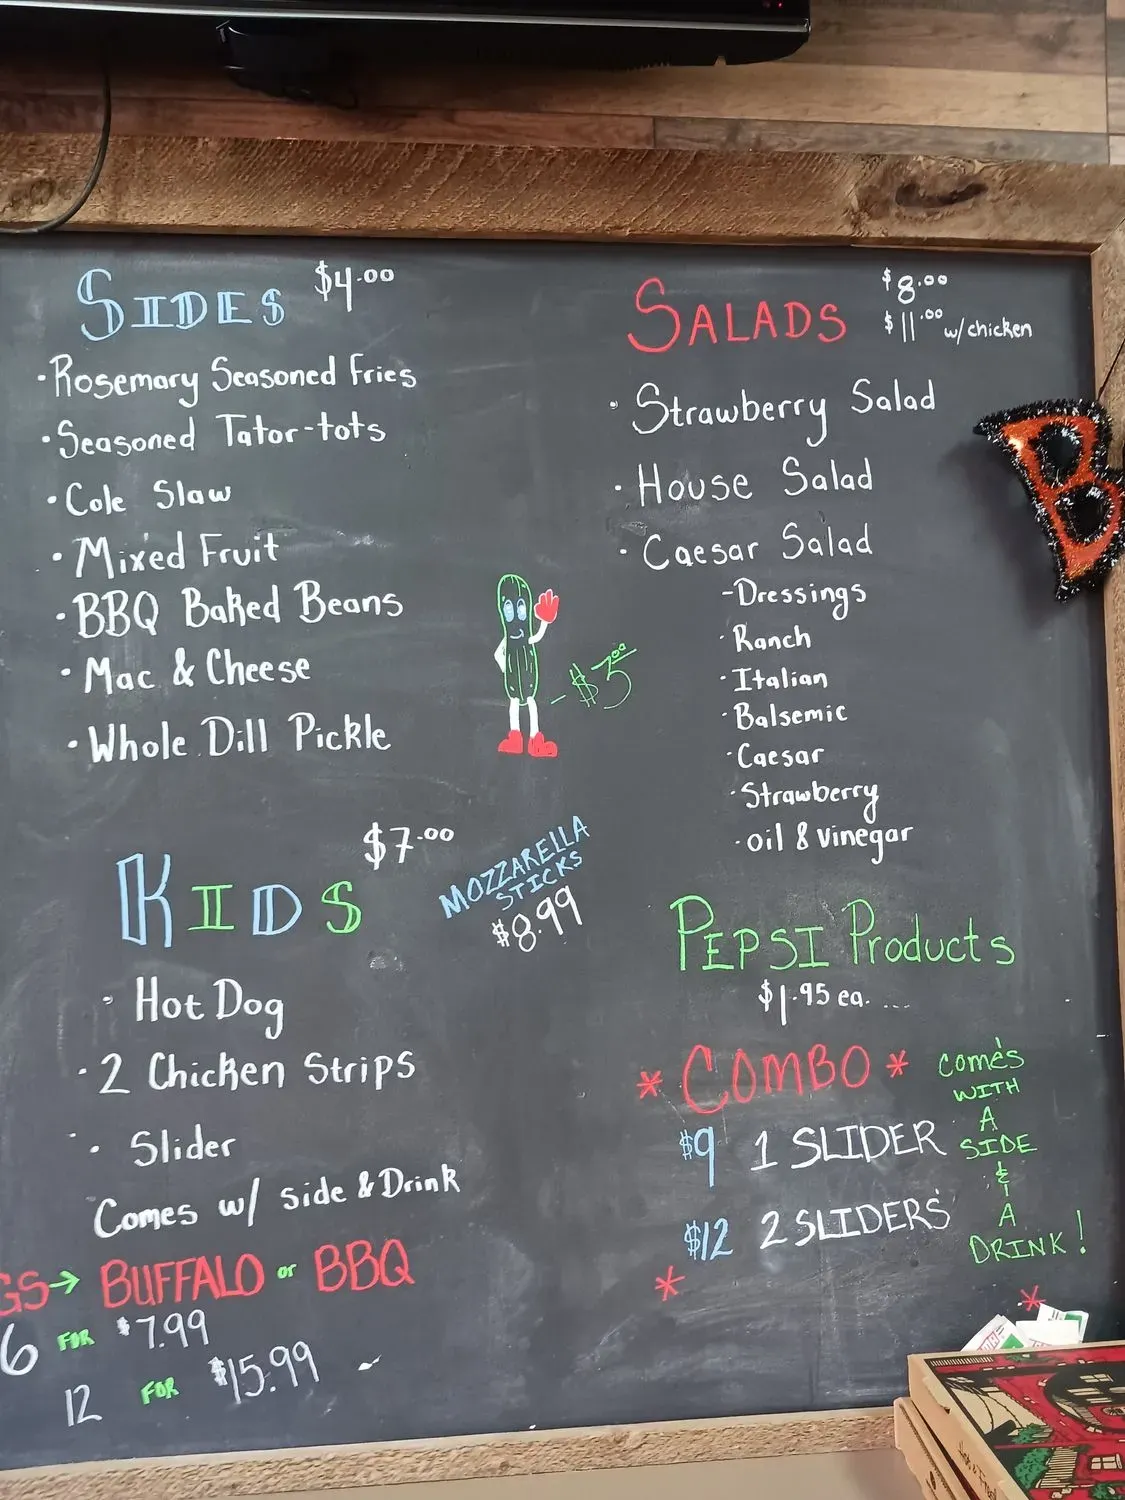 SIDES $4.00
·Rosemary Seasoned Fries
·Seasoned Tator-tots
·Cole Slaw
·Mixed Fruit
·BBQ Baked Beans
·Mac & Cheese
·Whole Dill Pickle
-$3.00
KIDS $7.00
·Hot Dog
·2 Chicken Strips
·Slider
Comes w/ side & Drink
MOZZARELLA
STICKS
$8.99
GS→ BUFFALO or BBQ
6 FOR $7.99
12 FOR $15.99
SALADS $8.00
$11.00 w/chicken
·Strawberry Salad
·House Salad
·Caesar Salad
-Dressings
·Ranch
·Italian
·Balsemic
·Caesar
·Strawberry
·oil & vinegar
PEPSI Products
$1.95 ea. ...
*COMBO*
$9 1 SLIDER
$12 2 SLIDERS
comes
WITH
A
SIDE
&
A
DRINK!
B